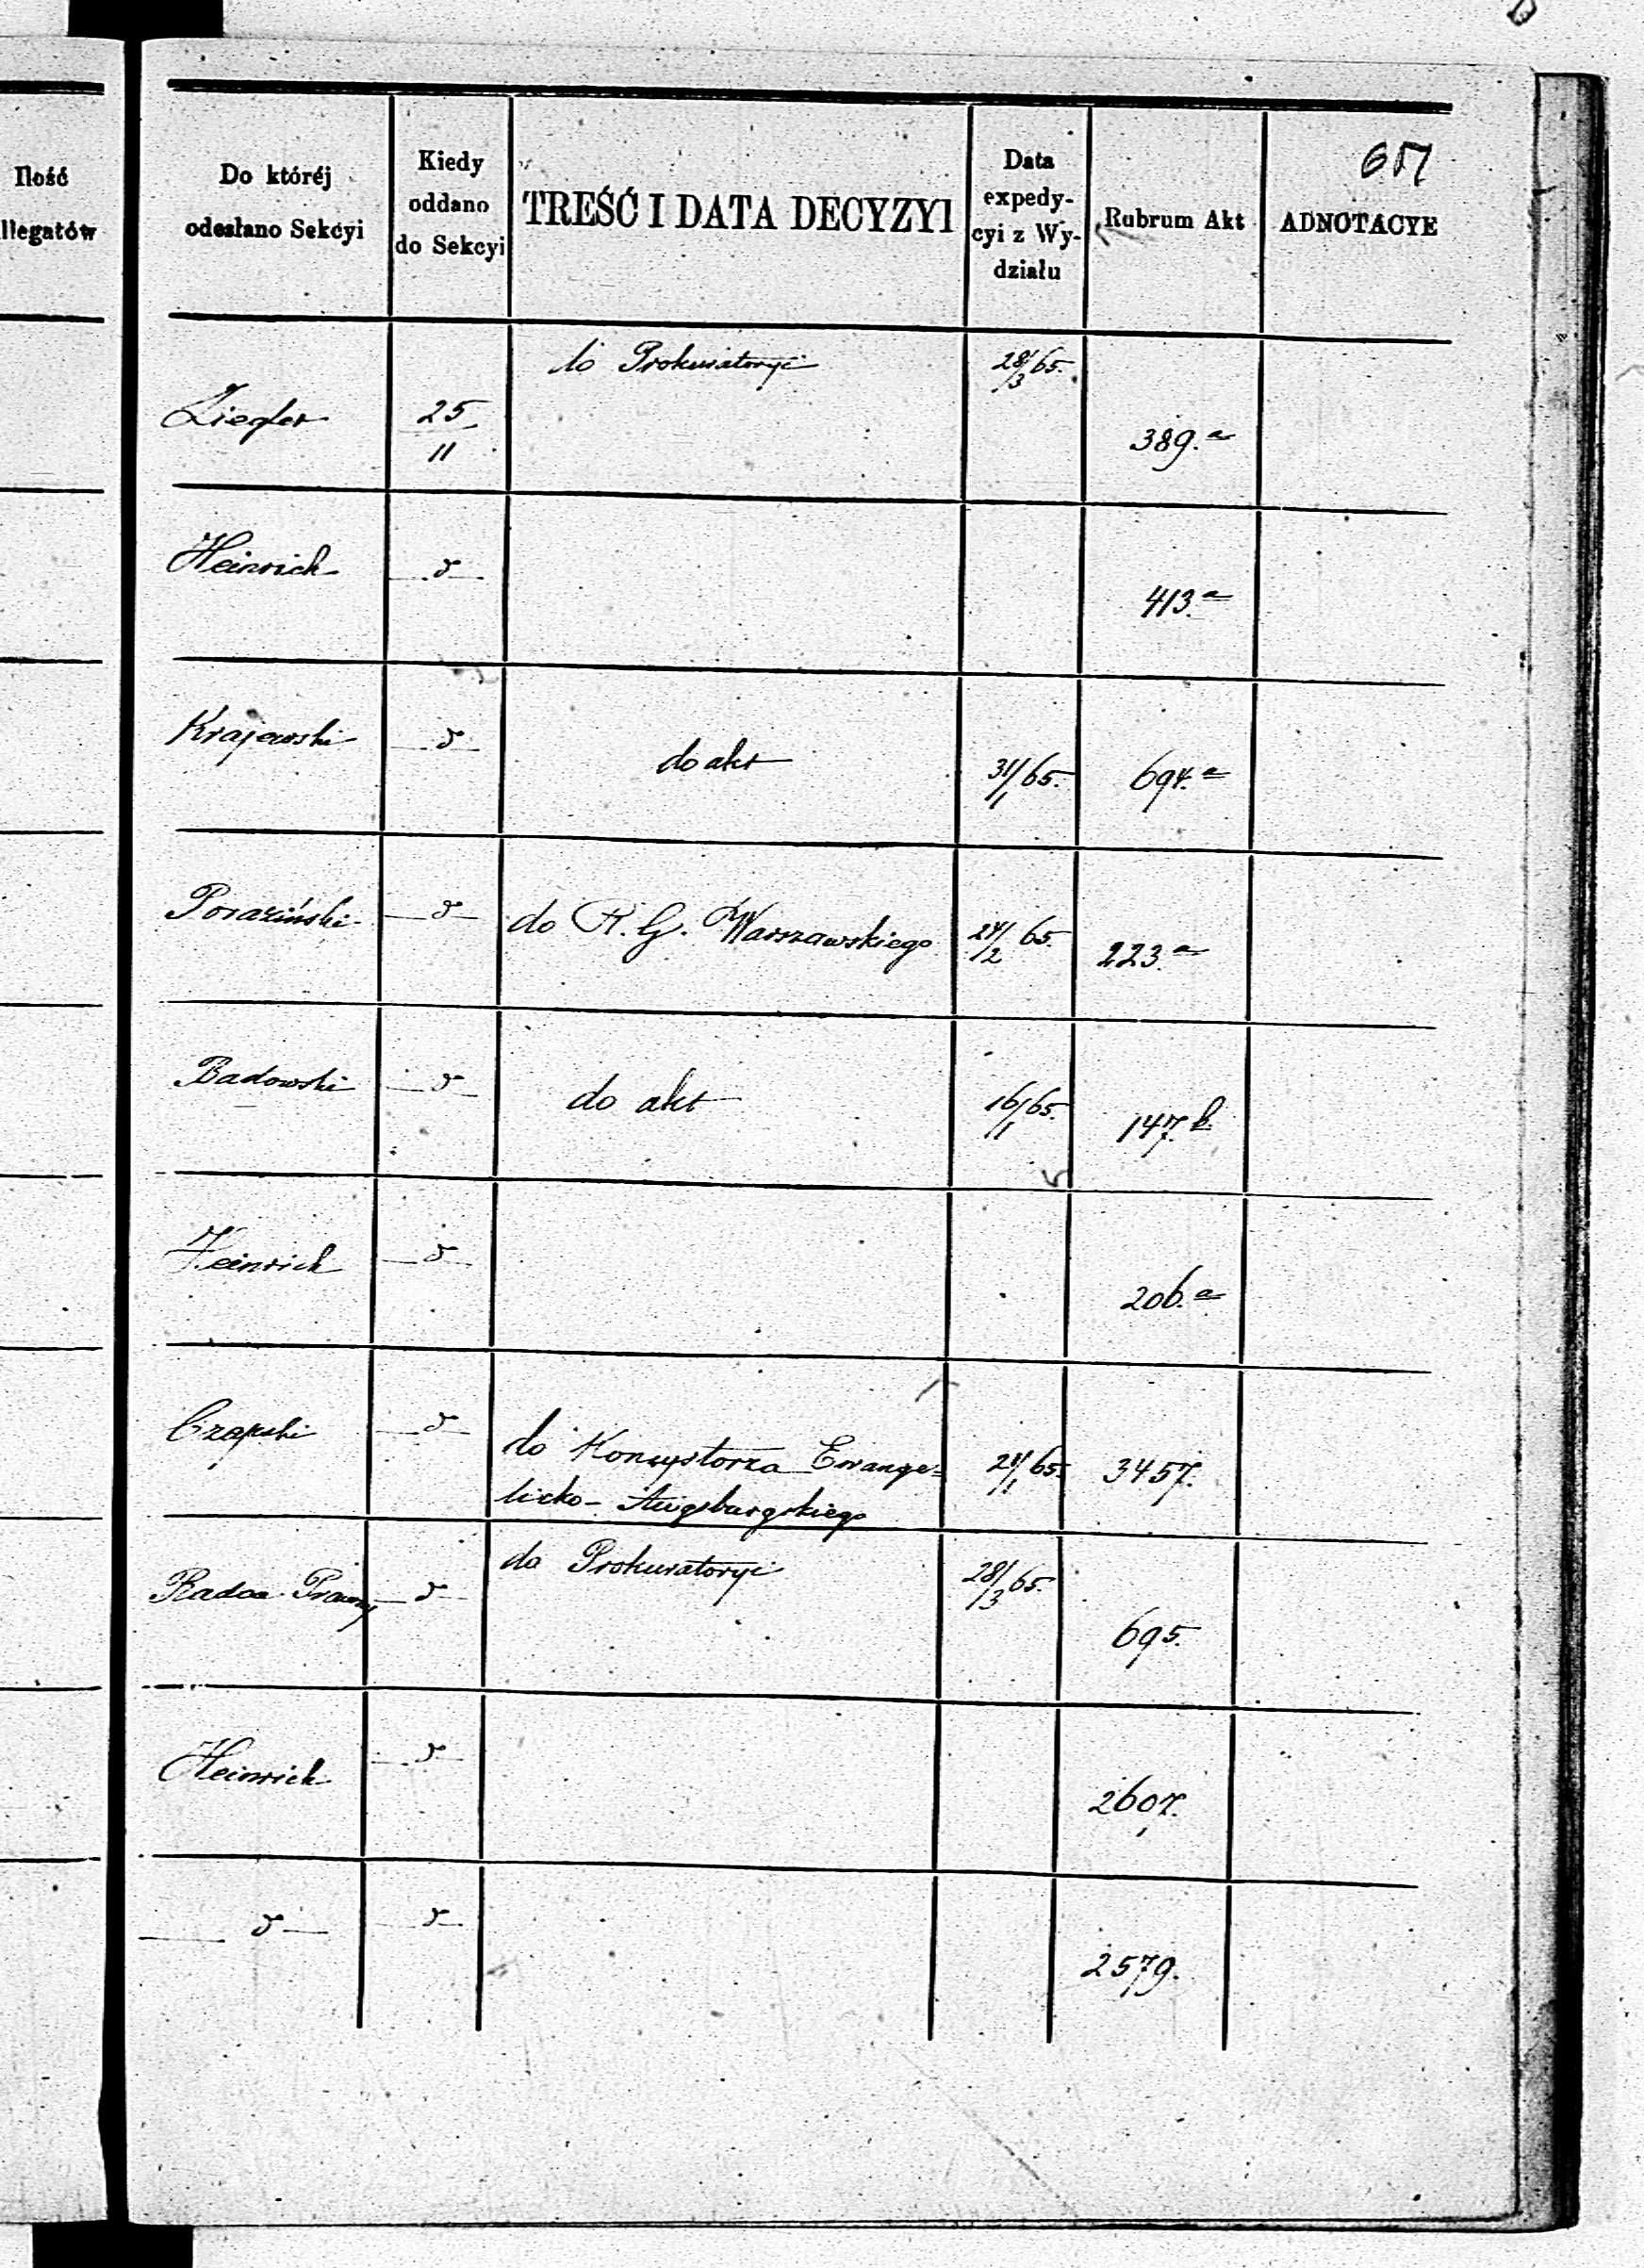 617
Ilość
llegatów
Do któréj
odesłano Sekcyi
Kiedy
oddano
do Sekcyi
TREŚĆ I DATA DECYZYI
Data
expedy-
cyi z Wy-
działu
Rubrum Akt
ADNOTACYE
do Prokuratoryi 28/3 65.
Ziegler 25/11 389.a
Heinrich d 413.a
Krajewski d do akt 31/1 65. 694.a
Poraziński d do R. G. Warszawskiego 24/2 65. 223.a
Badowski d do akt 16/1 65. 147.b.
Heinrich d 206.a
Czapski d do Konsystorza Ewange= 21/1 65. 3457.
licko-Augsburgskiego
do Prokuratoryi 28/3 65.
Radca Prawny d 695.
Heinrich d 2607.
d d 2579.